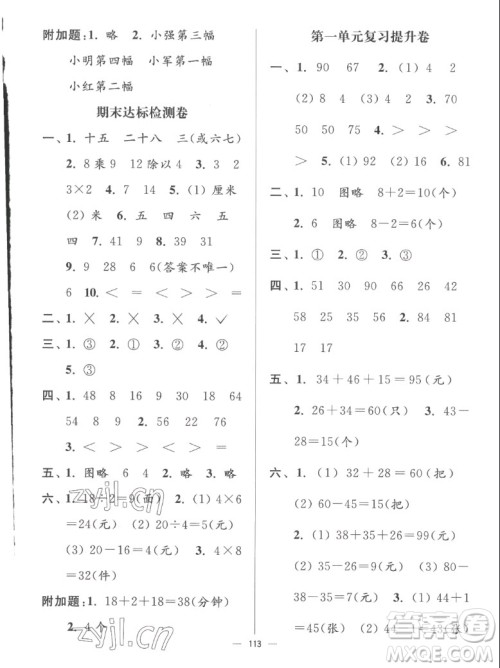 附加题：1. 略　2. 小强第三幅
小明第四幅　小军第一幅
小红第二幅
期末达标检测卷
一、1. 十五　二十八　三(或六七)
2. 8乘9　12除以4　3. 8　2
3×2　4. 7　14　5. (1) 厘米
(2) 米　6. 四　四　六　五
四　7. 41　9　8. 17　51
9. 28　6　6(答案不唯一)
6　10. ＜　＝　＜　＝
二、1. ×　2. ×　3. √
三、1. ③　2. ③　3. ②　4. ②
四、1. 30　9　18　29　48　64
54　8　56　2. 16　18　34
3. ＜　＞　＞　＞　＜　＞
五、1. 图略　6　4　2. 图略
六、1. 18÷2＝9(面)　2. (1) 4×6
＝24(元)　(2) 20÷4＝5(元)
(3) 20－16＝4(元)　3. 4×8
＝32(元)
附加题：1. 18＋2＋18＝38(分钟)
2. 4个
第一单元复习提升卷
一、1. 90　67　2. (1) 4　2
(2) 8　3. 73　37　4. ＞　＞
＞　＞　5. (1) 92　(2) 16　81
二、1. 10　图略　8＋2＝10(个)
2. 6　图略　8－2＝6(个)
三、1. ①　2. ①　3. ②
四、1. 51　30　90　31　58
75　41　50　2. 64　66　81
83
五、1. 34＋46＋15＝95(只)
2. 26＋34＝60(只)　3. 48－
28＝20(个)
六、1. (1) 32＋28＝60(把)
(2) 60－45＝15(把)
2. (1) 38＋35＋26＝99(元)
(2) 33＋45＝78(元)　100－
78＝22(元)　3. (1) 44＋1
＝45(张)　(2) 44－8＝36(张)
113
zyjl.cn
zyjl.cn
作业精灵